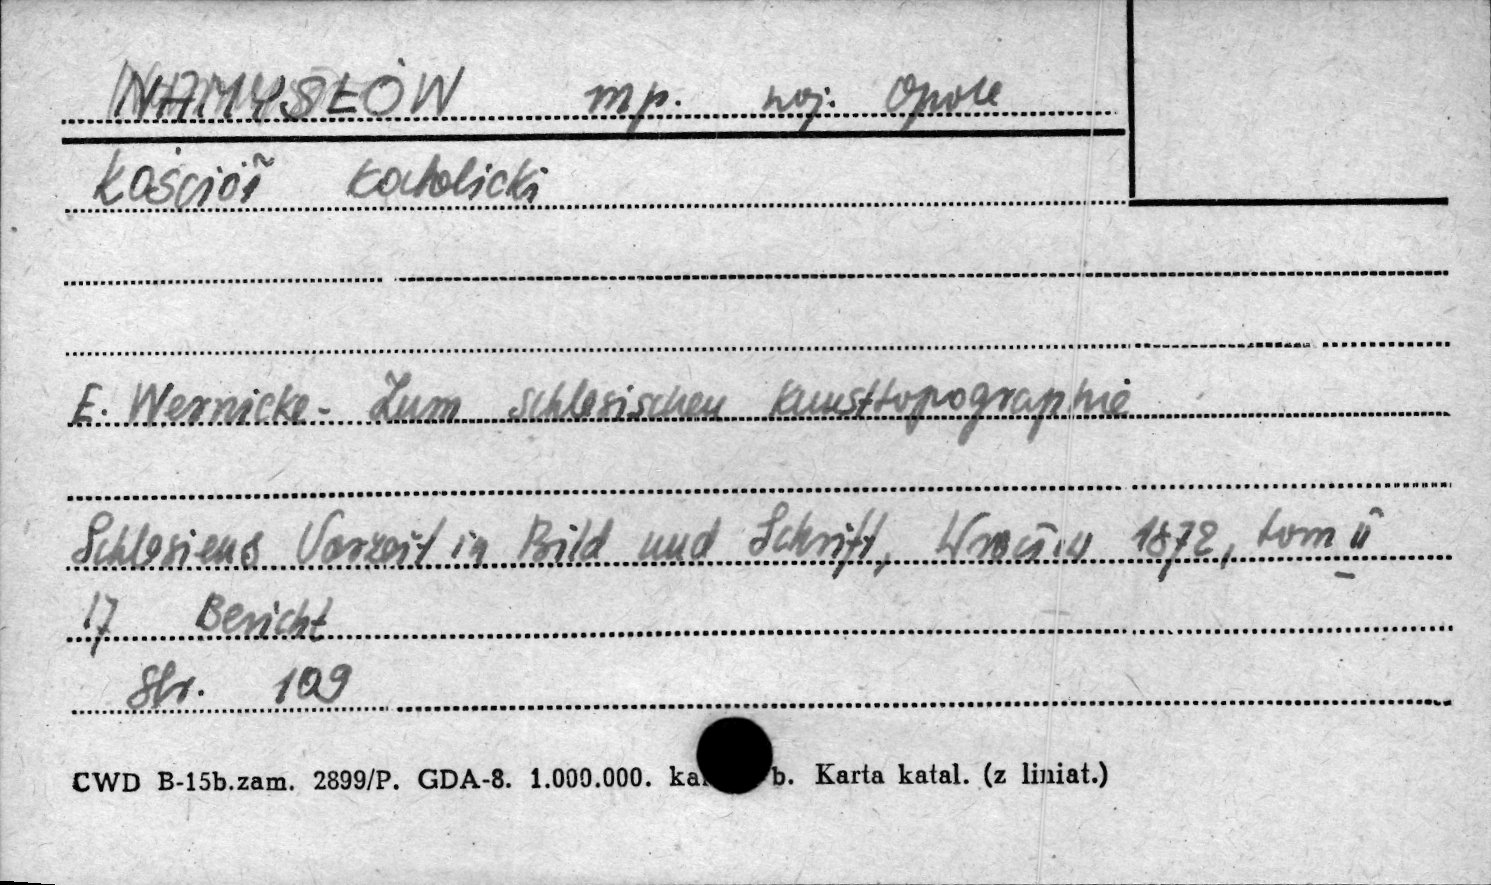 NAMYSŁÓW mp. woj. Opole
Kościół Katolicki
E. Wernicke - Zum schlesischen Kunsttopographie
Schlesiens Vorzeit in Bild und Schrift, Wrocław 1872, tom II
17 Bericht
Str. 109
CWD B-15b.zam. 2899/P. GDA-8. 1.000.000. b. Karta katal. (z liniat.)